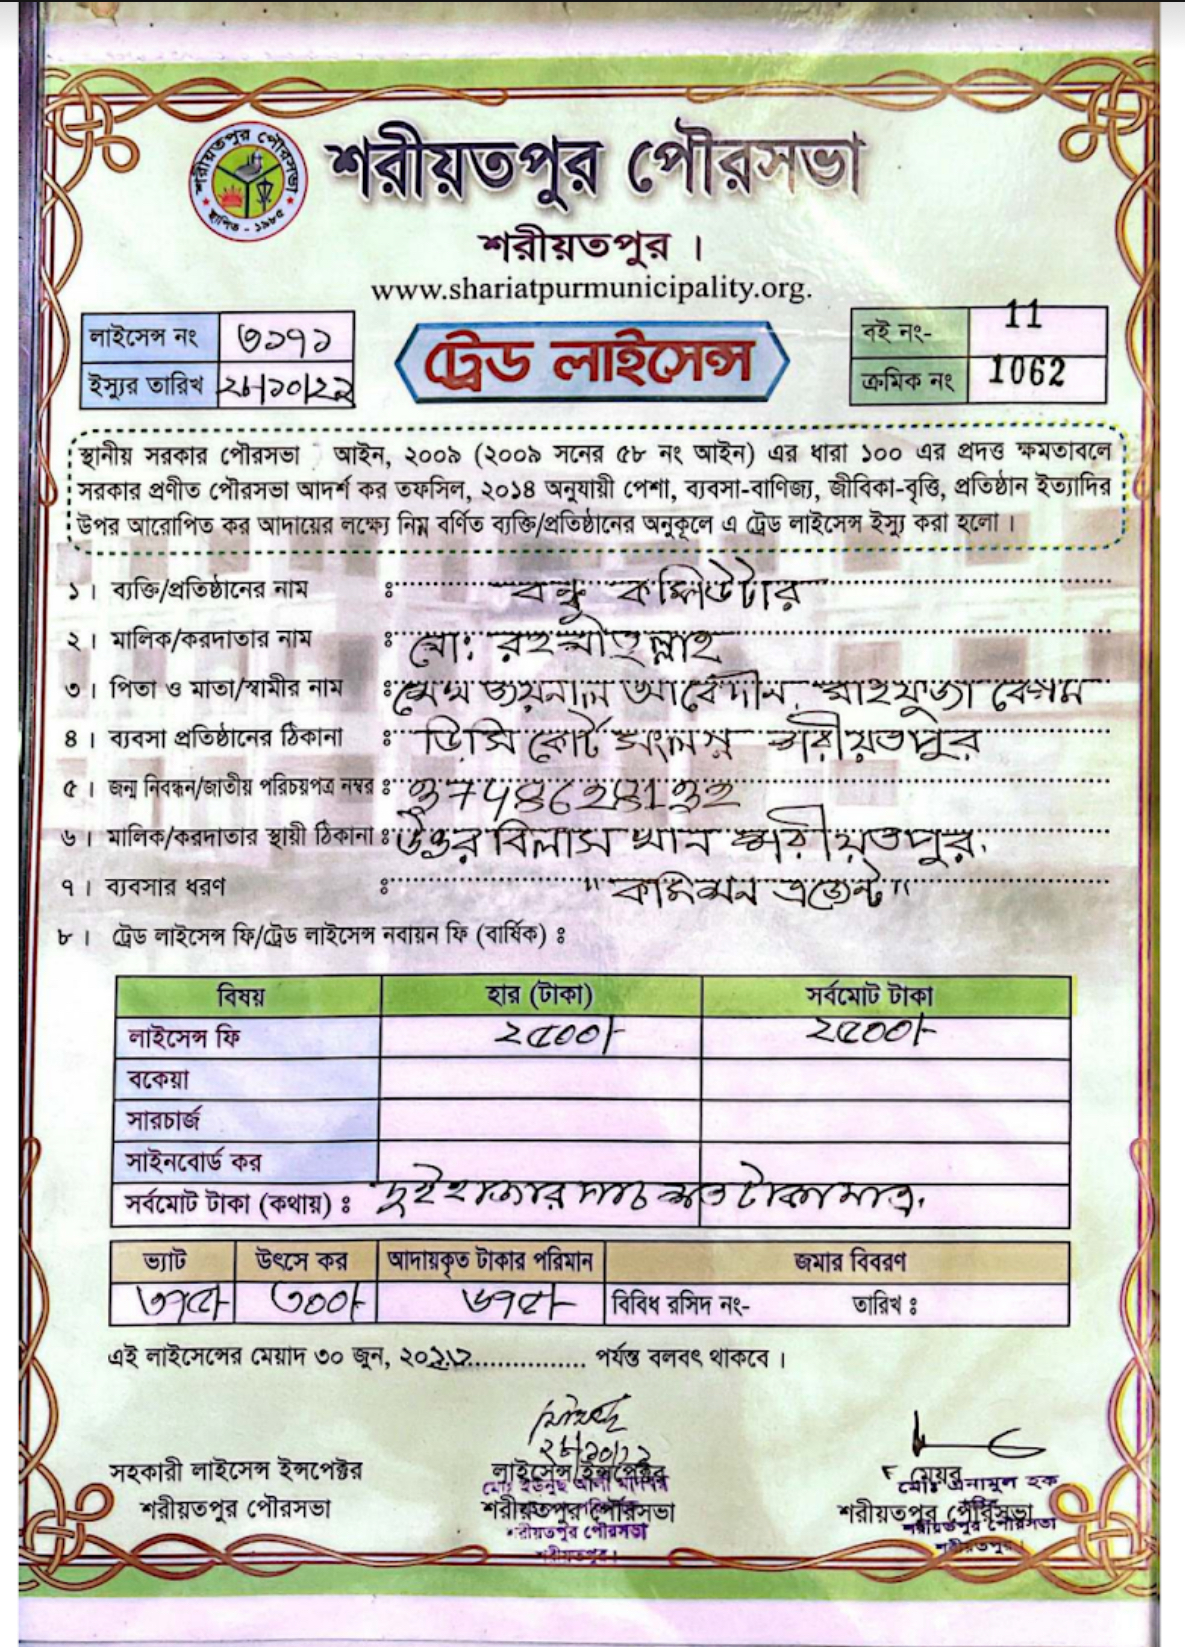 শরীয়তপুর পৌরসভা
স্থাপিত - ১৯৮৫
শরীয়তপুর পৌরসভা
শরীয়তপুর ।
www.shariatpurmunicipality.org.
লাইসেন্স নং ৩১৭১
ইস্যুর তারিখ ২৮/১০/২২
ট্রেড লাইসেন্স
বই নং- 11
ক্রমিক নং 1062
স্থানীয় সরকার পৌরসভা আইন, ২০০৯ (২০০৯ সনের ৫৮ নং আইন) এর ধারা ১০০ এর প্রদত্ত ক্ষমতাবলে
সরকার প্রণীত পৌরসভা আদর্শ কর তফসিল, ২০১৪ অনুযায়ী পেশা, ব্যবসা-বাণিজ্য, জীবিকা-বৃত্তি, প্রতিষ্ঠান ইত্যাদির
উপর আরোপিত কর আদায়ের লক্ষ্যে নিম্ন বর্ণিত ব্যক্তি/প্রতিষ্ঠানের অনুকূলে এ ট্রেড লাইসেন্স ইস্যু করা হলো ।
১। ব্যক্তি/প্রতিষ্ঠানের নাম ঃ বন্ধু কম্পিউটার
২। মালিক/করদাতার নাম ঃ মো: রহমাতুল্লাহ
৩। পিতা ও মাতা/স্বামীর নাম ঃ জয়নাল আবেদীন, মাহফুজা বেগম
৪। ব্যবসা প্রতিষ্ঠানের ঠিকানা ঃ ডিসি কোর্ট সংলগ্ন শরীয়তপুর
৫। জন্ম নিবন্ধন/জাতীয় পরিচয়পত্র নম্বর ঃ
৬। মালিক/করদাতার স্থায়ী ঠিকানা ঃ উত্তর বিলাস খান শরীয়তপুর.
৭। ব্যবসার ধরণ ঃ "কমিশন এজেন্ট"
৮। ট্রেড লাইসেন্স ফি/ট্রেড লাইসেন্স নবায়ন ফি (বার্ষিক) ঃ
বিষয় হার (টাকা) সর্বমোট টাকা
লাইসেন্স ফি ২৫০০/- ২৫০০/-
বকেয়া
সারচার্জ
সাইনবোর্ড কর
সর্বমোট টাকা (কথায়) ঃ দুই হাজার পাঁচ শত টাকা মাত্র.
ভ্যাট উৎসে কর আদায়কৃত টাকার পরিমান জমার বিবরণ
৩৭৫/- ৩০০/- ৬৭৫/- বিবিধ রসিদ নং- তারিখ ঃ
এই লাইসেন্সের মেয়াদ ৩০ জুন, ২০২৩ পর্যন্ত বলবৎ থাকবে ।
২৮/১০/২২
সহকারী লাইসেন্স ইন্সপেক্টর লাইসেন্স ইন্সপেক্টর মেয়র
শরীয়তপুর পৌরসভা শরীয়তপুর পৌরসভা শরীয়তপুর পৌরসভা
শরীয়তপুর পৌরসভা শরীয়তপুর পৌরসভা
শরীয়তপুর। শরীয়তপুর।